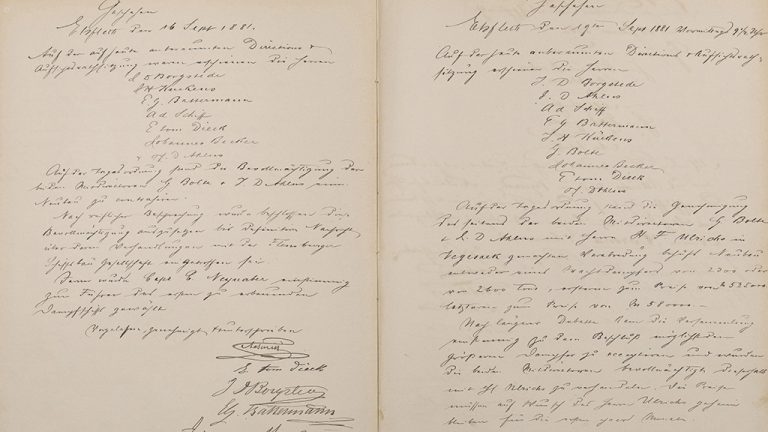 Geschehen
Elsfleth den 16 Sept 1881.
Auf der auf heute anberaumten Directions &
Aufsichtsrathssitzung waren erschienen die Herren
J D Borgstede
J H Küchens
E G Battermann
Ad Schiff
E tom Dieck
Johannes Becker
J D Ahlers
Auf der Tagesordnung stand die Bevollmächtigung der
beiden Mitdirectoren G Bolte & J D Ahlers einen
Neubau zu contrahiren.
Nach reiflicher Besprechung wurde beschlossen diese
Bevollmächtigung auszusetzen bis definitive Nachricht
über den Verhandlungen mit der Flensburger
Schiffbau Gesellschaft eingetroffen sei
Dann wurde Capt C einstimmig
zum Führer des ersten zu erbauenden
Dampfschiffs gewählt
Vorgelesen, genehmigt, & unterschrieben
E tom Dieck
J D Borgstede
E G Battermann
Geschehen
Elsfleth den 19ten Sept 1881 Vormittags 9½ Uhr
Auf der heute anberaumten Directions & Aufsichtsrath-
sitzung erschienen die Herren
J. D Borgstede
J. D Ahlers
Ad Schiff
E G Battermann
J H Küchens
G Bolte
Johannes Becker
E tom Dieck
Auf der Tagesordnung stand die Genehmigung
der seitens der beiden Mitdirectoren G Bolte
& J. D Ahlers mit Herrn H F Ulrichs in
Vegesack gemachten Verabredung behufs Neubau
entweder eines Frachtdampfers von 2300 oder
von 2600 Tons, ersteren zum Preise von 525.00
letzteren zum Preise von 58000.–
Nach längerer Debatte kam die Versammlung
einstimmig zu dem Beschluß möglichst den
größeren Dampfer zu acceptiren und wurden
die beiden Mitdirectoren bevollmächtigt deshalb
mit H. Ulrichs zu verhandeln. Die Preise
müssen auf Wunsch des Herrn Ulrichs geheim
bleiben für die ersten paar Monate.